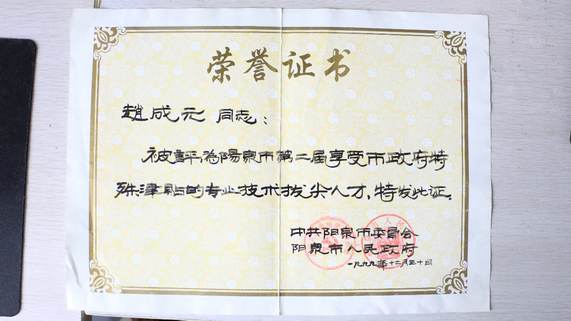 荣誉证书
趙成元 同志：
被評为陽泉市第二届享受市政府特
殊津贴的专业技术拔尖人才，特发此证。
中共阳泉市委員会
阳泉市人民政府
一九九九年十二月三十日